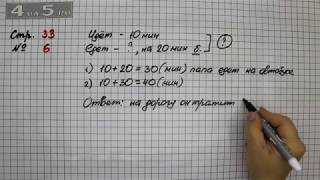 4 на 5 .com
Стр. 33
№ 6
Идёт – 10 мин
Едет – ?, на 20 мин б.
?
1) 10+20=30(мин) папа едет на автобусе
2) 10+30=40(мин)
Ответ: на дорогу он тратит